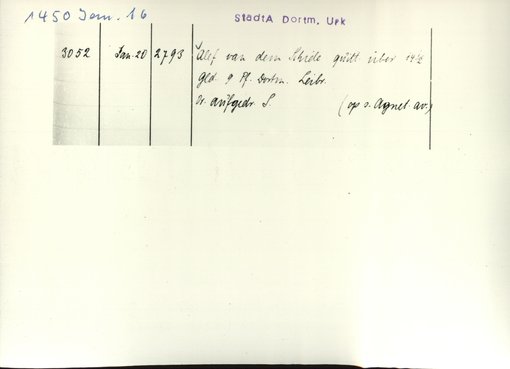 1450 Jan. 16
StadtA Dortm. Urk
3052 Jan. 20 2793 Alef van dem Schide quitt. über 14½
Gld. 9 Pf. Dortm. Leibr.
Or. aufgedr. S. (op s. Agnet av.)